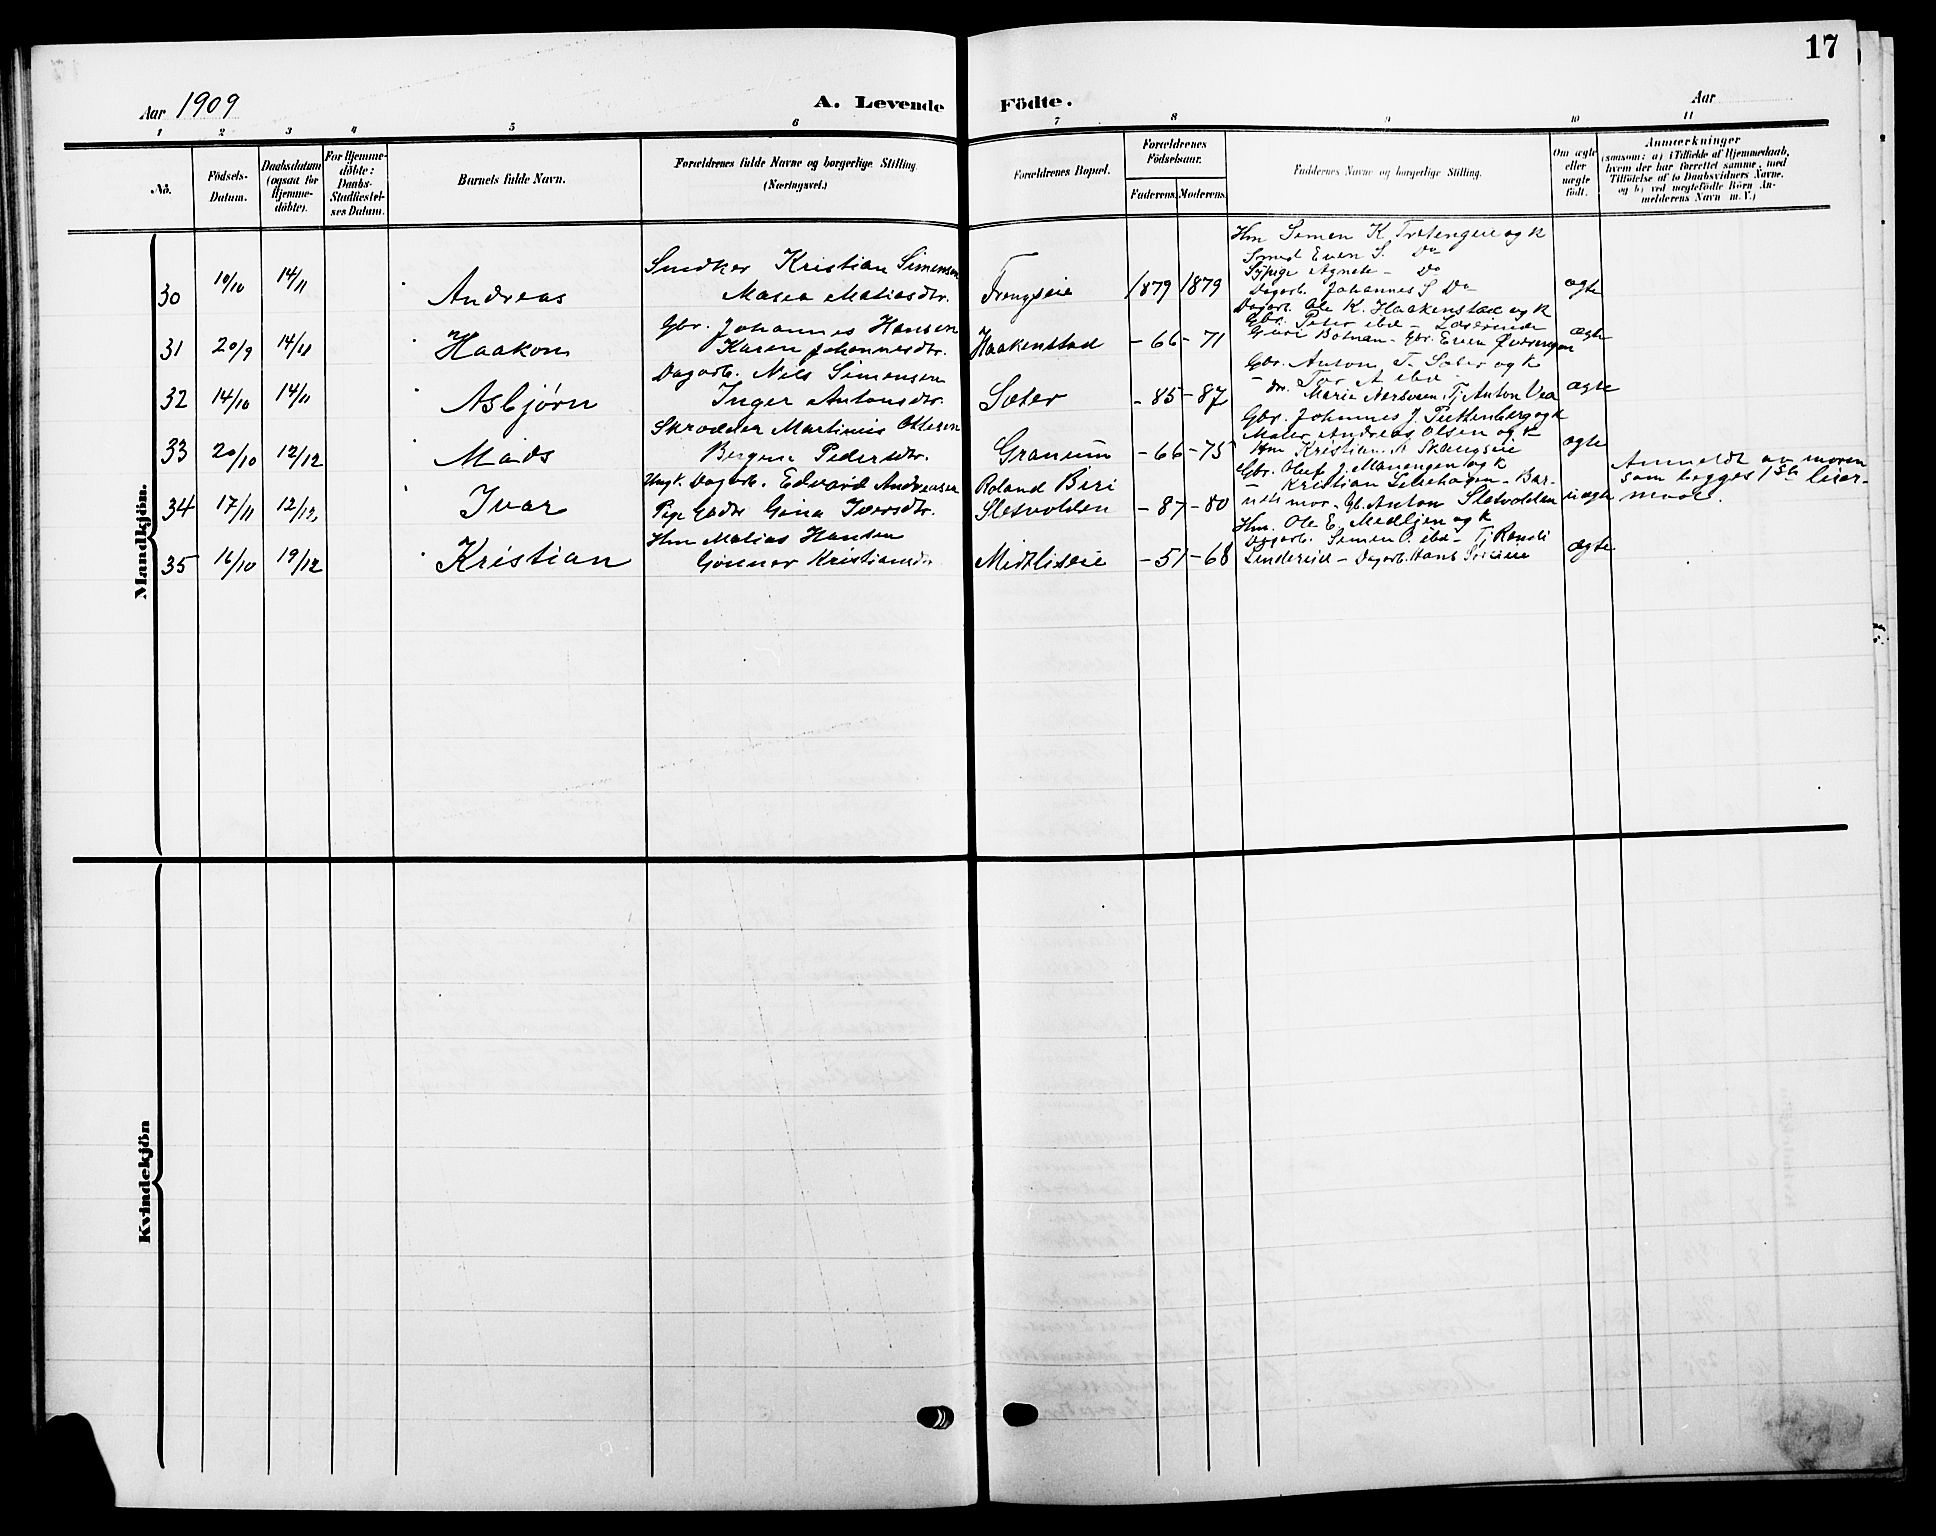 17
Aar 1909 A. Levende Födte. Aar
1 2 3 4 5 6 7 8 9 10 11
No. Födsels-Datum. Daabsdatum (ogsaa for Hjemme-döbte). For Hjemme-döbte: Daabs-Stadfæstel-ses Datum. Barnets fulde Navn. Forældrenes fulde Navne og borgerlige Stilling. (Næringsvei.) Forældrenes Bopæl. Forældrenes Födselsaar. Faderens. Moderens. Faddernes Navne og borgerlige Stilling. Om ægte eller uægte födt. Anmærkninger (saasom: a) i Tilfælde af Hjemmedaab, hvem der har forrettet samme, med Tilföielse af to Daabsvidners Navne, og b) ved uægtefödte Börn An-melderens Navn m. V.)
Mandkjön.
Hm Simen K Tretengeie og k
Smed Even S. Do
Snedker Kristian Simensen Sypige Agnete - Do
30 10/10 14/11 Andreas Masea Matiasdtr. Trongseie 1879 1879 Dagarb. Johannes S Do ægte
Dagarb. Ole K. Haakenstad og k
Gbr. Johannes Hansen Gbr. Peter ibd - Læreinde
31 20/9 14/11 Haakon Karen Johannesdtr. Haakenstad - 66 - 71 Guri Botnan - Gbr. Even Øvdrengen ægte
Dagarb. Nils Simensen Gbr. Anton T. Sæter og k
32 14/10 14/11 Asbjørn Inger Antonsdtr. Sæter - 85 - 87 - dr. Tor A ibd Marie Nersveen, Tj. Anton Vea ægte
Skrædder Martinius Ottesen Gbr. Johannes J. Puttenberg og k
33 20/10 12/12 Mads Bergine Pedersdtr. Granum - 66 - 75 Maler Andreas Olsen og k Hm Kristian A Skaugseie ægte
Ungk. Dagarb. Edvard Andresen Roland Biri Gbr. Olef J. Manengen og k
34 17/11 12/12 Ivar Pige Gbdtr Gina Iversdtr. Sletvolden - 87 - 80 - Kristian Lebehagen - Bar-nets mor - Gb. Anton Sletvolden uægte Anmeldt av moren som begges 1ste leier-maal.
Hm Matias Hansen Hm. Ole E. Medlien og k
35 16/10 19/12 Kristian Gunnor Kristiansdtr Midtliseie - 51 - 68 Dagarb. Simen O. ibd - Tj. Randi Lindereid - Dagarb. Hans ægte
Kvindekjön